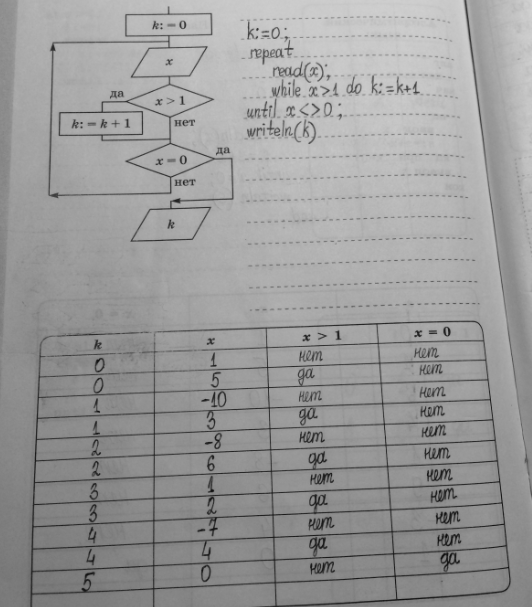 k: = 0
x
да
x > 1
k: = k + 1
нет
да
x = 0
нет
k
k:=0;
repeat
read(x);
while x>1 do k:=k+1
until x<>0;
writeln(k)
k x x > 1 x = 0
0 1 нет нет
0 5 да нет
1 -10 нет нет
1 3 да нет
2 -8 нет нет
2 6 да нет
3 1 нет нет
3 2 да нет
4 -7 нет нет
4 4 да нет
5 0 нет да